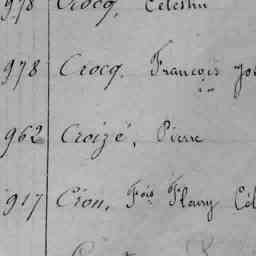 978 Crocq, Célestin
978 Crocq, François
962 Croizé, Pierre
917 Cron, Fois Fleury